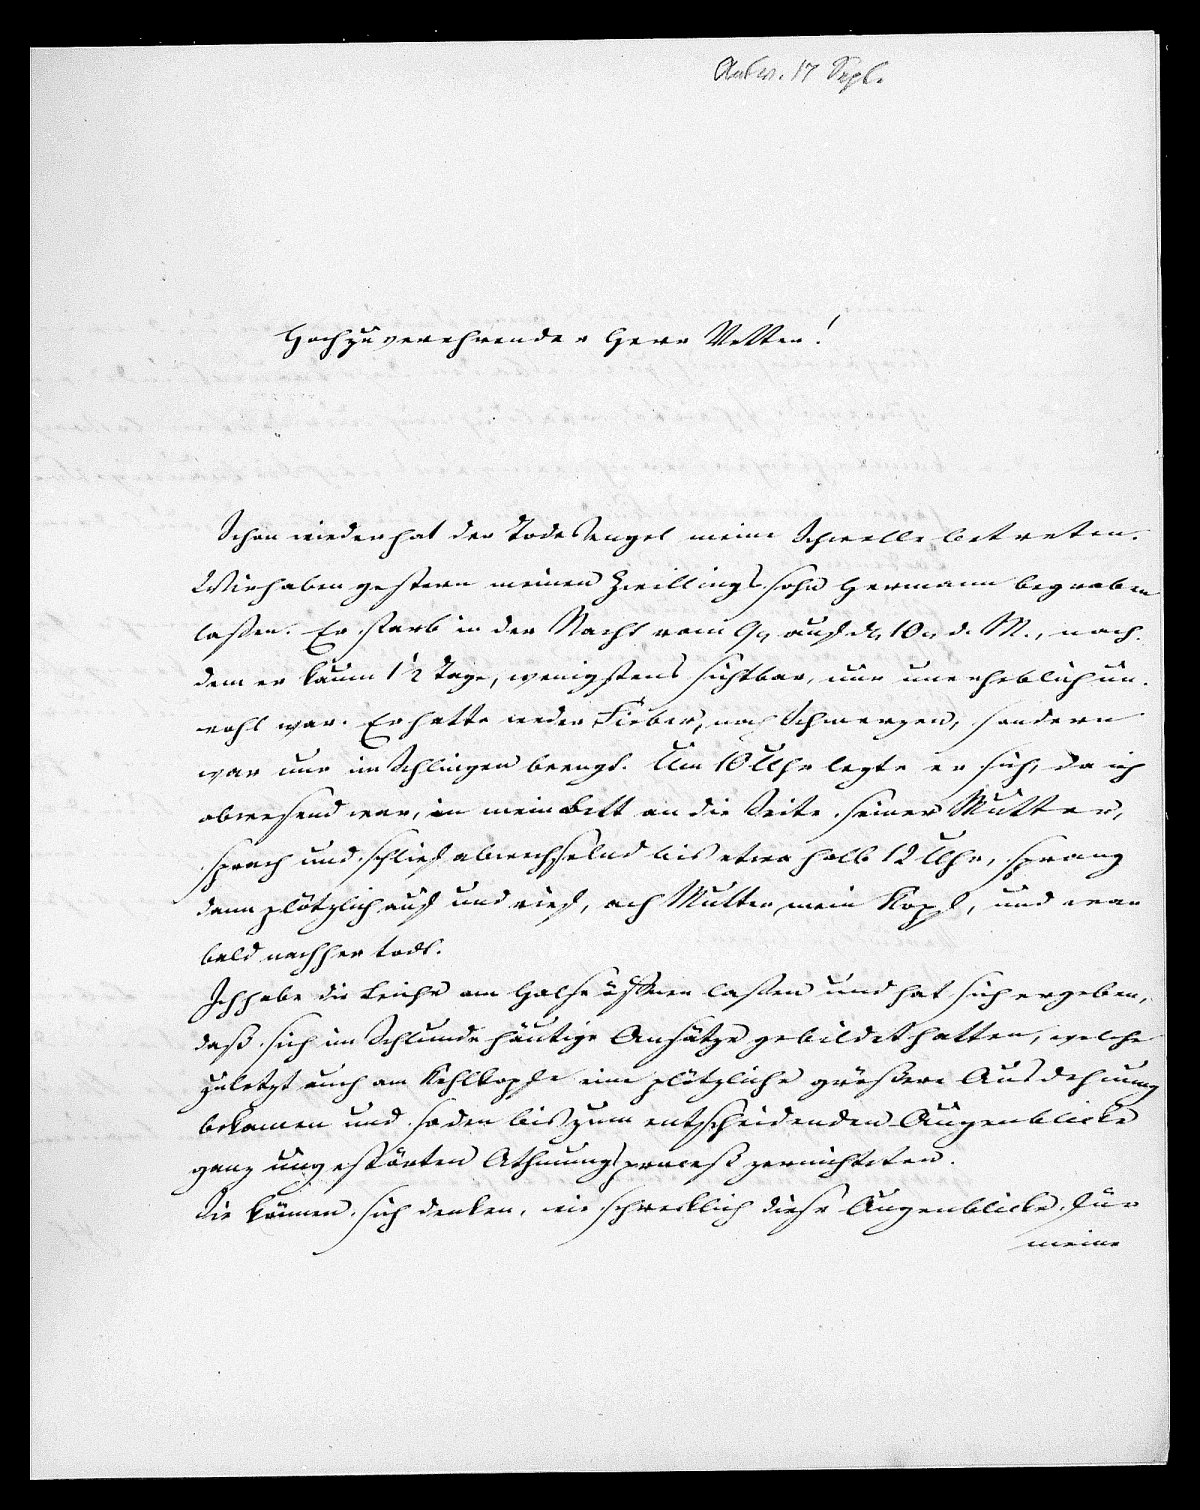 Antw. 17 Sept.
Hochzuverehrender Herr Vetter!
Schon wieder hat der Todesengel meine Schwelle betreten.
Wir haben gestern meinen Zwillingssohn Hermann begraben
laßen. Er starb in der Nacht vom 9n auf d. 10n d. M., nach-
dem er kaum 1½ Tage, wenigstens sichtbar, nur unerheblich un-
wohl war. Er hatte weder Fieber, noch Schmerzen, sondern
war nur im Schlingen beengt. Um 10 Uhr legte er sich, da ich
abwesend war, in mein Bett an die Seite seiner Mutter,
sprach und schlief abwechselnd bis etwa halb 12 Uhr, sprang
dann plötzlich auf und rief, ach Mutter mein Kopf, und war
bald nachher todt.
Ich habe die Leiche am Halse öffnen laßen und hat sich ergeben,
daß sich im Schlunde häutige Ansätze gebildet hatten, welche
zuletzt auch am Kehlkopfe eine plötzliche größere Ausdehnung
bekamen und so den bis zum entscheidenden Augenblicke
ganz ungestörten Athmungsproceß vernichteten.
Sie können sich denken, wie schrecklich diese Augenblicke für
meine